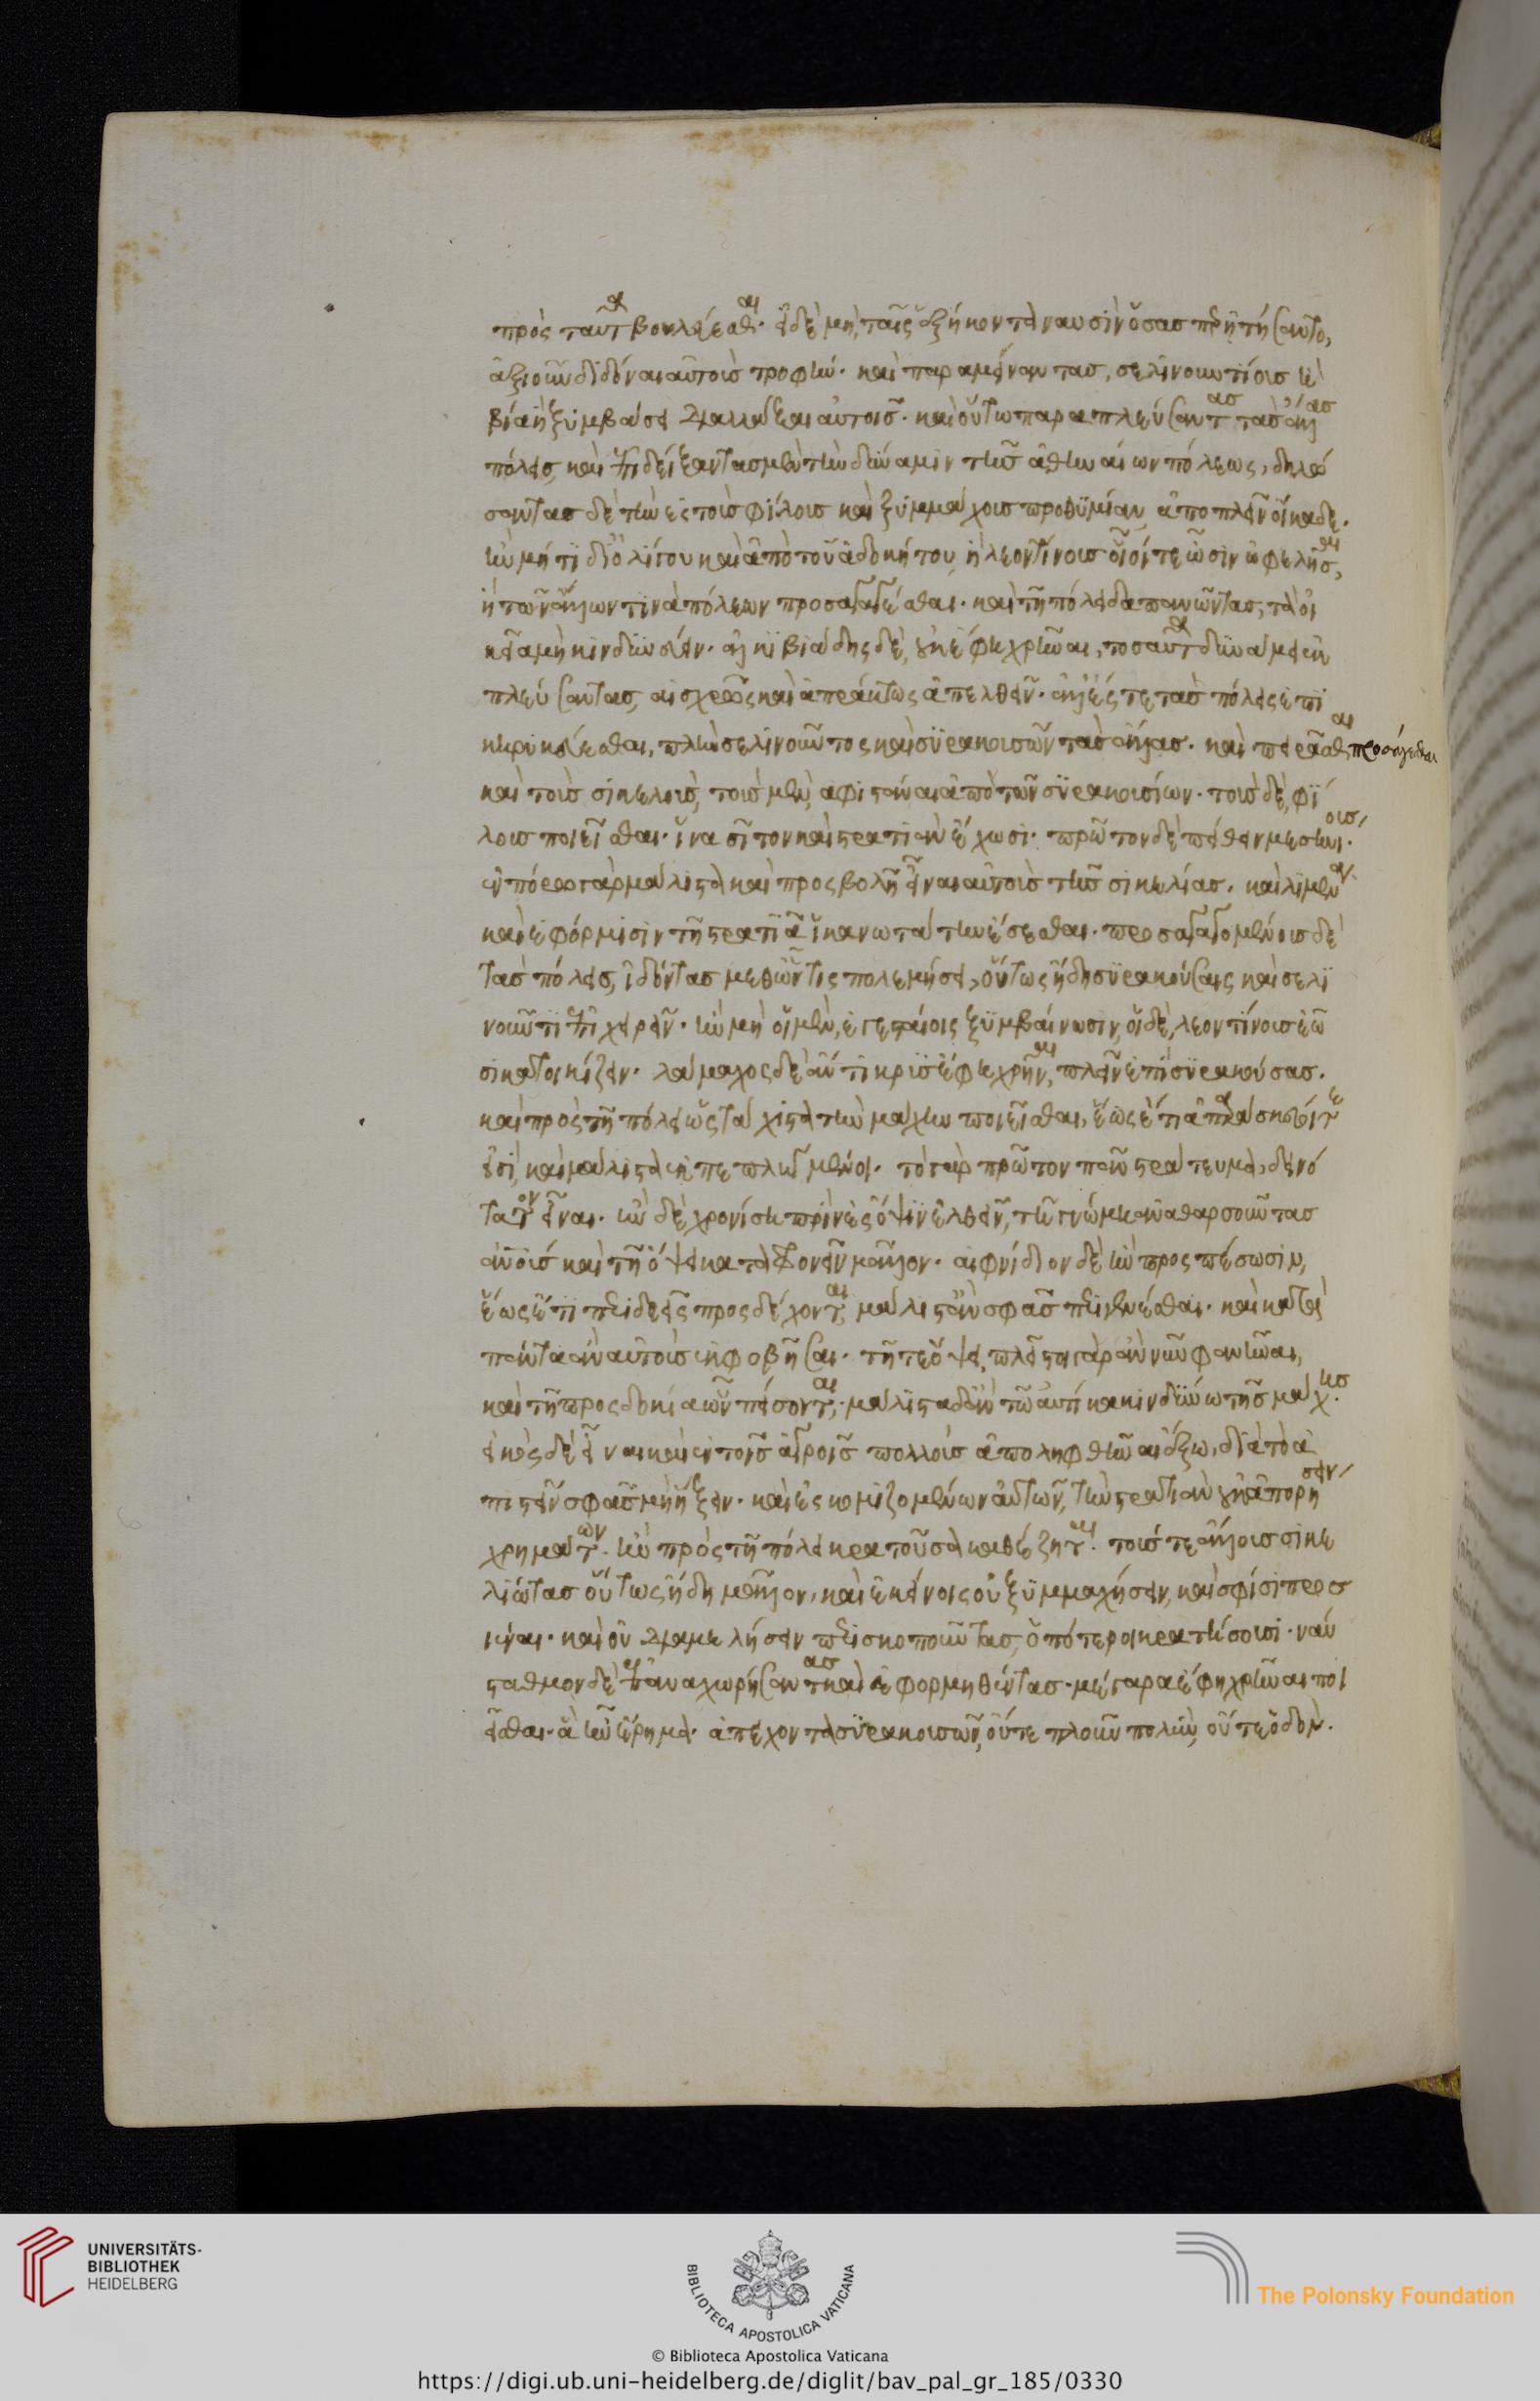 πρὸς ταῦτα βουλεύεσθαι· εἰ δὲ μὴ, ταῖς ἑξήκοντα ναυσὶν ὅσας περ ᾐτήσαντο,
ἀξιοῦν διδόναι αὐτοῖς τροφὴν· καὶ παραμείναντας, σελινουντίοις ἢ
βίᾳ ἢ ξυμβάσει διαλλάξαι αὐτοῖς· καὶ οὕτω παραπλεύσαντας τὰς ἄλλας
πόλεις, καὶ ἐπιδείξαντας μὲν τὴν δύναμιν τῆς ἀθηναίων πόλεως, δηλώ
σαντας δὲ τὴν ἐς τοὺς φίλους καὶ ξυμμάχους προθυμίαν, ἀποπλεῖν οἴκαδε·
ἢν μή τι δι' ὀλίγου καὶ ἀπὸ τοῦ ἀδοκήτου, ἢ λεοντίνους οἷοί τε ὦσιν ὠφελῆσαι,
ἢ τῶν ἄλλων τινὰ πόλεων προσαγαγέσθαι· καὶ τῇ πόλει δαπανῶντας, τὰ οἰ
κεῖα μὴ κινδυνεύειν· ἀλκιβιάδης δὲ, οὐκ ἔφη χρῆναι, τοσαύτῃ δυνάμει ἐκ
πλεύσαντας, αἰσχρῶς καὶ ἀπράκτως ἀπελθεῖν· ἀλλ' ἔς τε τὰς πόλεις ἐπι
κηρυκεύεσθαι, πλὴν σελινοῦντος καὶ συρακουσῶν τὰς ἄλλας· καὶ πειρᾶσθαι προσάγεσθαι
καὶ τοὺς σικελοὺς, τοὺς μὲν, ἀφιστάναι ἀπὸ τῶν συρακουσίων· τοὺς δὲ, φί
λους ποιεῖσθαι· ἵνα σῖτον καὶ στρατιὰν ἔχωσι· πρῶτον δὲ πείθειν μεσηνίους·
ἐν πόρῳ γὰρ μάλιστα καὶ προσβολῇ εἶναι αὐτοὺς τῆς σικελίας· καὶ λιμένα
καὶ ἐφόρμισιν τῇ στρατιᾷ ἱκανωτάτην ἔσεσθαι· προσαγαγομένους δὲ
τὰς πόλεις, ἰδόντας μεθ' ὧν τις πολεμήσει, οὕτως ἤδη συρακούσαις καὶ σελι
νοῦντι ἐπιχειρεῖν· ἢν μὴ οἱ μὲν, ἐγεσταίοις ξυμβαίνωσιν, οἱ δὲ, λεοντίνους ἐῶ
σι κατοικίζειν· λάμαχος δὲ ἄντικρυς ἔφη χρῆναι, πλεῖν ἐπὶ συρακούσας·
καὶ πρὸς τῇ πόλει ὡς τάχιστα τὴν μάχην ποιεῖσθαι, ἕως ἔτι ἀπαράσκευοί τε
εἰσὶ, καὶ μάλιστα ἐκπεπληγμένοι· τὸ γὰρ πρῶτον πᾶν στράτευμα, δεινό
τατον εἶναι· ἢν δὲ, χρονίσῃ πρὶν ἐς ὄψιν ἐλθεῖν, τῇ γνώμῃ ἀναθαρσοῦντας
ἀνοὺς καὶ τῇ ὄψει καταφρονεῖν μᾶλλον· αἰφνίδιον δὲ ἢν προσπέσωσιν,
ἕως ἔτι περιδεεῖς προσδέχονται, μάλιστ' ἂν σφᾶς περιγενέσθαι· καὶ κατὰ
πάντα ἂν αὐτοὺς ἐκφοβῆσαι· τῇ τε ὄψει, πλεῖστοι γὰρ ἂν νῦν φανῆναι,
καὶ τῇ προσδοκίᾳ ὧν πείσονται, μάλιστα δ' ἂν τῷ αὐτίκα κινδύνῳ τῆς μάχης·
εἰκὸς δὲ εἶναι καὶ ἐν τοῖς ἀγροῖς πολλοὺς ἀποληφθῆναι ἔξω, διὰ τὸ ἀ
πιστεῖν σφᾶς μὴ ἥξειν· καὶ ἐσκομιζομένων αὐτῶν, τὴν στρατιὰν οὐκ ἀπορήσειν
χρημάτων· ἢν πρὸς τῇ πόλει κρατοῦσα καθέζηται· τούς τε ἄλλους σικε
λιώτας οὕτως ἤδη μᾶλλον, καὶ ἐκείνοις οὐ ξυμμαχήσειν, καὶ σφίσι προσ
ιέναι· καὶ οὐ διαμελλήσειν περισκοποῦντας, ὁπότεροι κρατήσουσι· ναύ
σταθμον δὲ ἐπαναχωρήσαντας καὶ ἐφορμηθέντας· μέγαρα ἔφη χρῆναι ποι
εῖσθαι· ἃ ἦν ἔρημα· ἀπέχοντα συρακουσῶν, οὔτε πλοῦν πολὺν, οὔτε ὁδὸν·
UNIVERSITÄTS-
BIBLIOTHEK
HEIDELBERG
BIBLIOTECA APOSTOLICA VATICANA
The Polonsky Foundation
© Biblioteca Apostolica Vaticana
https://digi.ub.uni-heidelberg.de/diglit/bav_pal_gr_185/0330